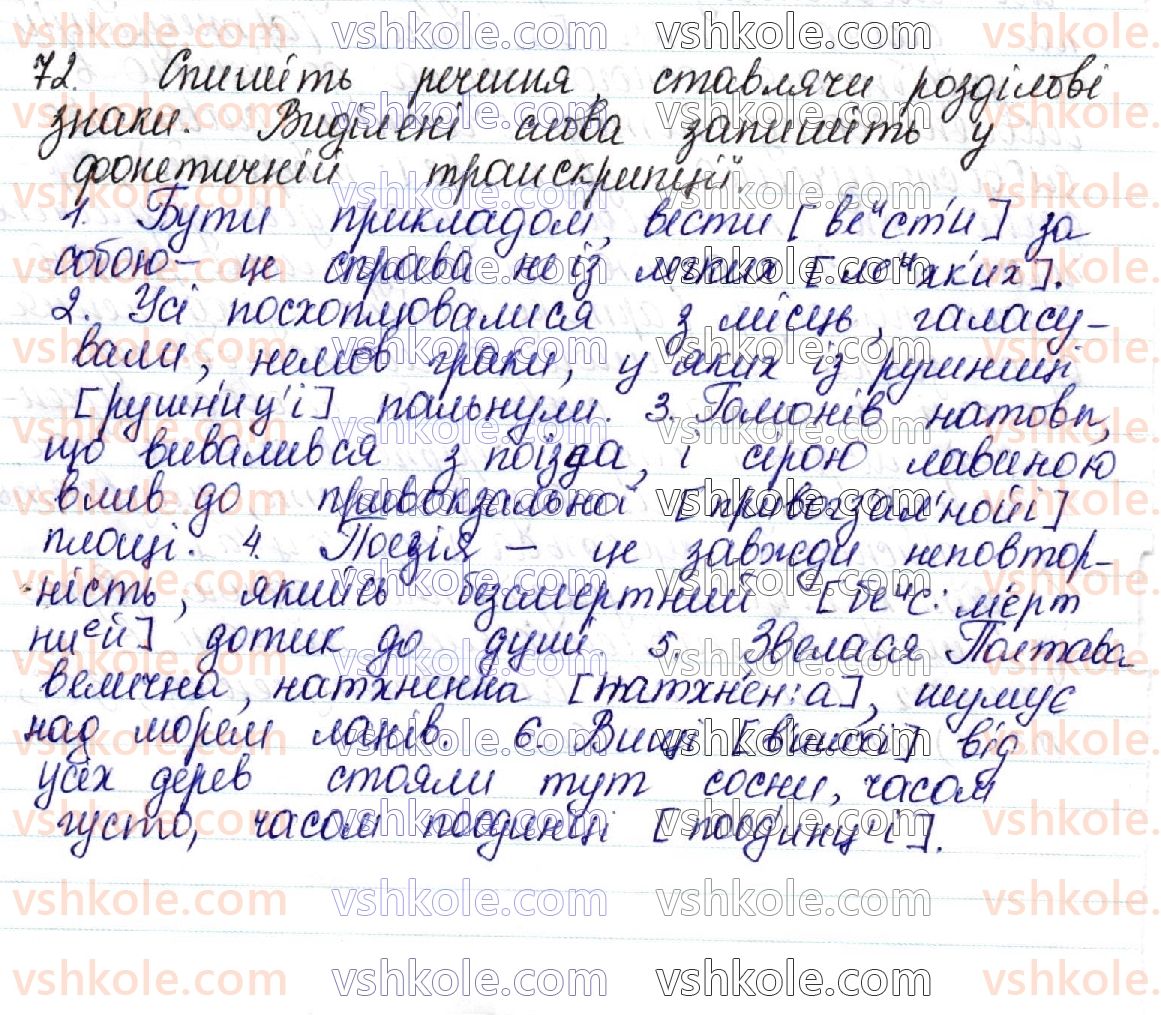 72. Спишіть речення, ставлячи розділові
знаки. Виділені слова запишіть у
фонетичній транскрипції.
1. Бути прикладом, вести [веᴵᴵсти́] за
собою – це справа не із легких [леᴵᴵхки́х].
2. Усі посхоплювалися з місць, галасу-
вали, немов граки, у яких із рушниці
[рушни́ц'і] пальнули. 3. Гомонів натовп,
що вивалився з поїзда, і сірою лавиною
влив до привокзальної [пр вогза́л'нойі]
площі. 4. Поезія – це завжди неповтор-
ність, якийсь безсмертний [беᴵᴵс:ме́рт
ниᵉй] дотик до душі. 5. Звелася Полтава
велична, натхненна [натхне́н:а], шумує
над морем ланів. 6. Вищі [ви́шчі] від
усіх дерев стояли тут сосни, часом
густо, часом поодинці [пооди́нц'і].
vshkole.com